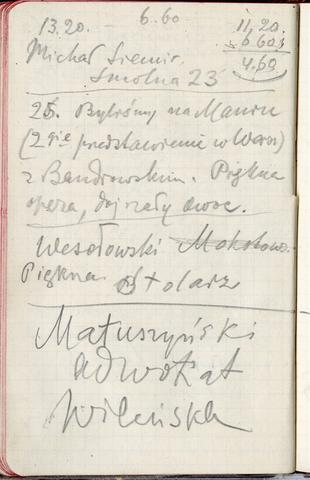 13.20. - 6.60
11,20.
6 60
4.60
Michał Siemir.
Smolna 23
25. Byliśmy na Manru
(2gie przedstawienie w Warsz)
z Bandrowskim. Piękna
opera, dojrzały owoc.
Wesołowski Mokotow.
Piękna Stolarz
Matuszyński
adwokat
Wileńska